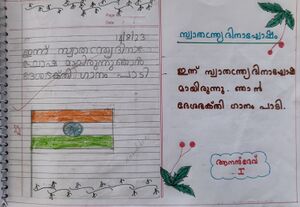 14/8/23
ഇന്ന് സ്വാതന്ത്ര്യദിനാ
ഘോഷ മായിരുന്നു.ഞാൻ
ദേശഭക്തി ഗാനം പാടി
സ്വാതന്ത്ര്യദിനാഘോഷം
ഇന്ന് സ്വാതന്ത്ര്യദിനാഘോഷ
മായിരുന്നു. ഞാൻ
ദേശഭക്തി ഗാനം പാടി.
ആനന്ദ്ദേവ്
I